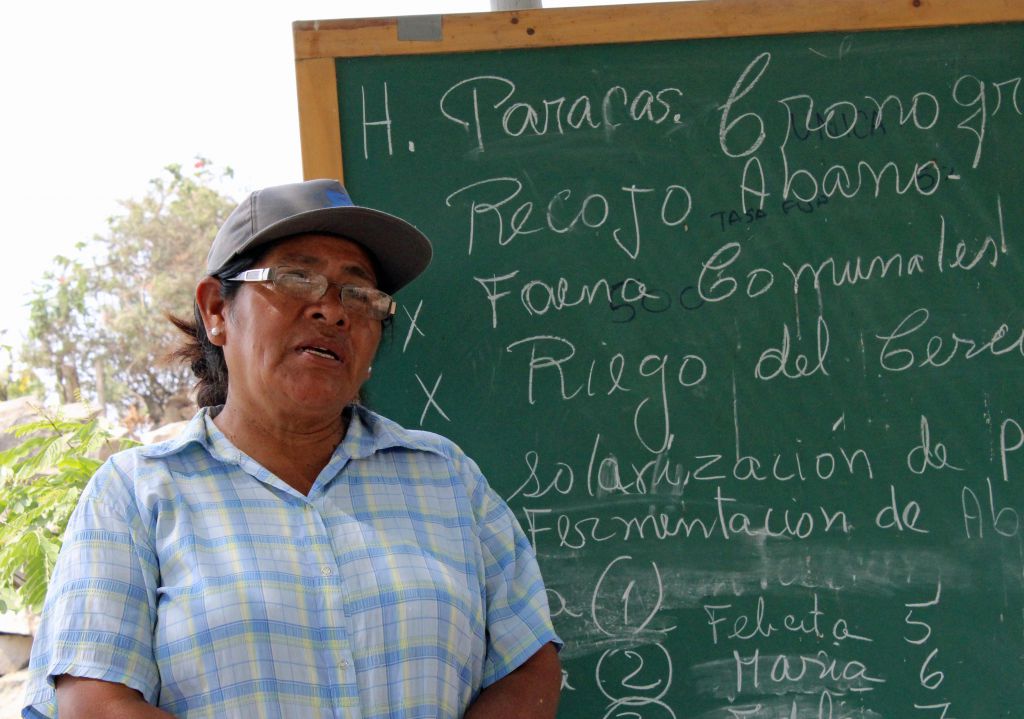 H. Paracas. Cronogr
Recojo Abano.
TASA
Faena Comunales
500
X
Riego del Cerc
X
solarización de P
Fermentacion de Ab
a (1)
Felicita 5
a (2) Maria 6